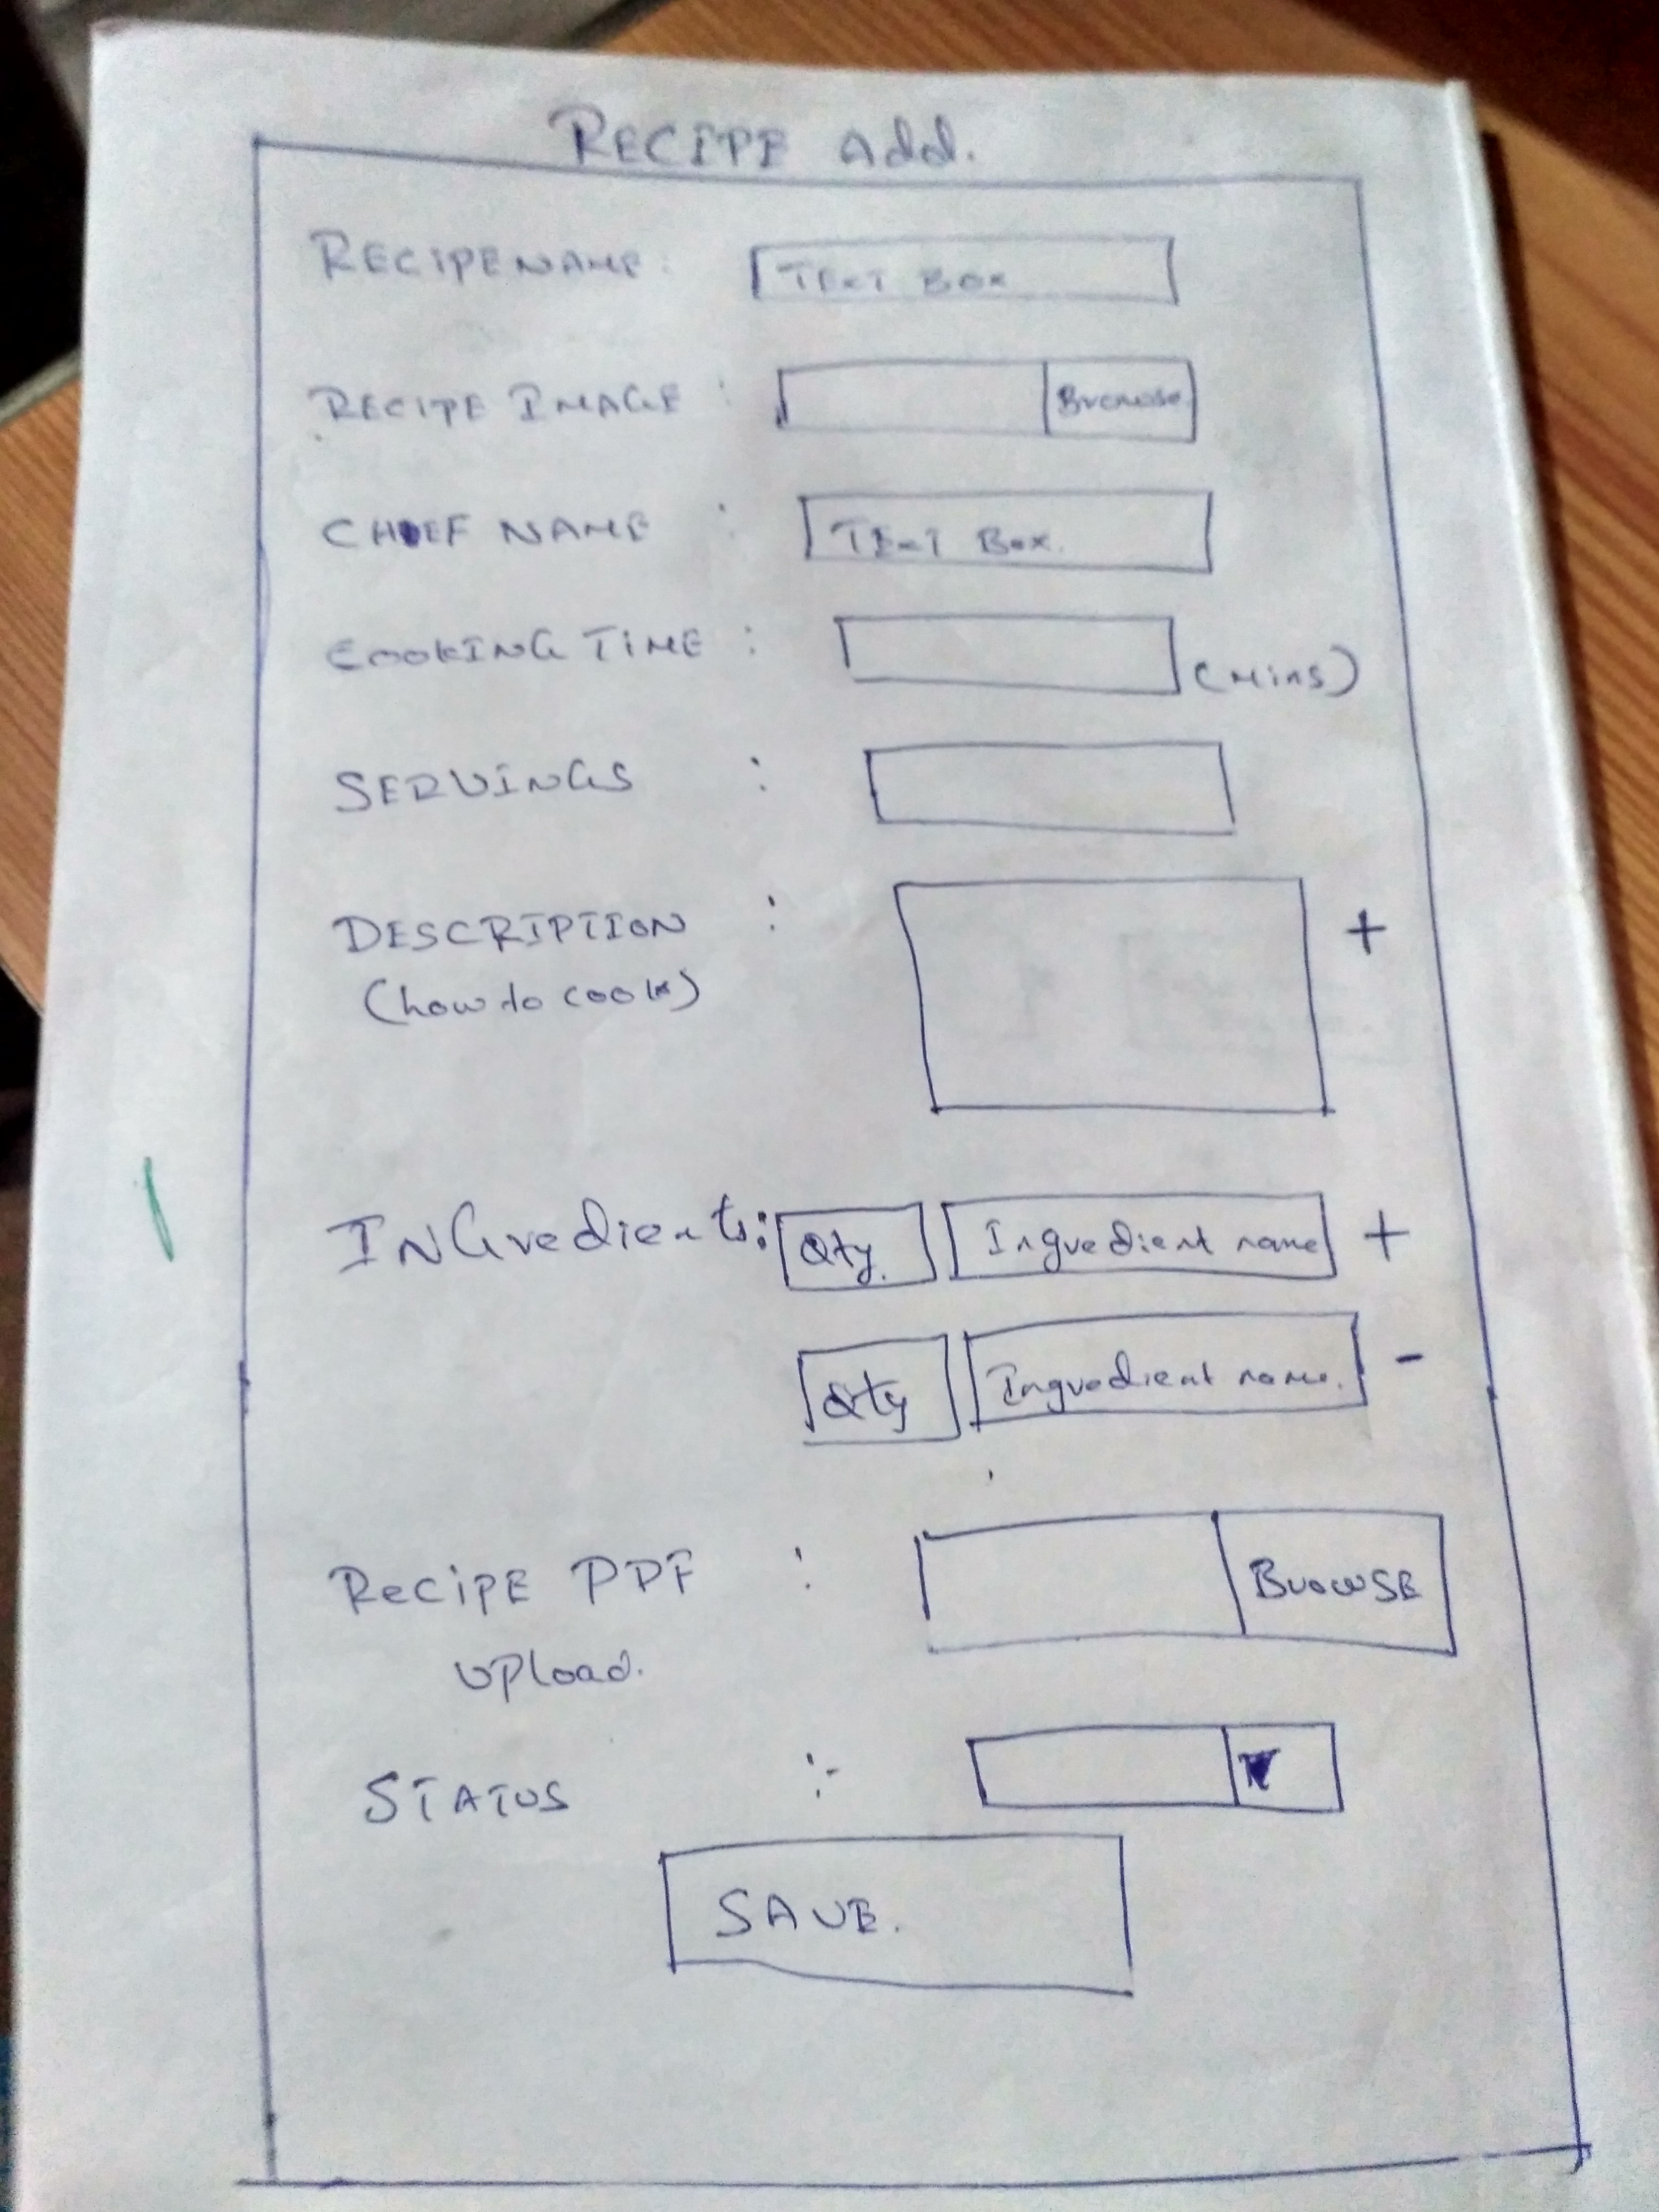 RECIPE Add.
RECIPE NAME : TEXT BOX
RECIPE IMAGE : Browse
CHEF NAME : TEXT BOX.
COOKING TIME : (Mins)
SERVINGS :
DESCRIPTION : +
(how to cook)
INGredients: Qty. Ingredient name +
Qty Ingredient name. -
RECiPE PDF : BrowSE
UPload.
STATUS :-
SAVE.